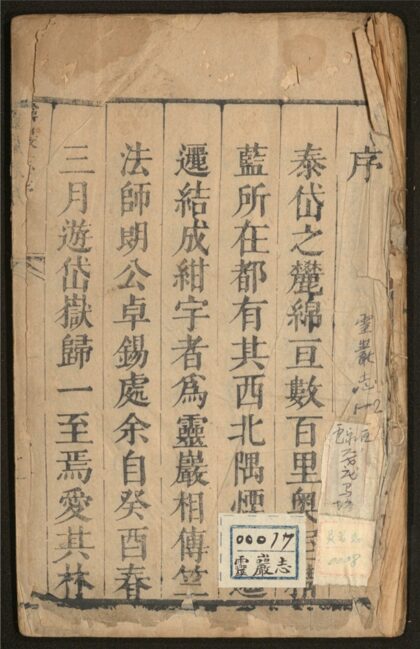 序
泰岱之麓綿亘數百里奧
藍所在都有其西北隅
邐結成紺宇者為靈巖相傳竺
法師朗公卓錫處余自癸酉春
三月遊岱嶽歸一至焉愛其林
靈巖志
00017
靈巖志